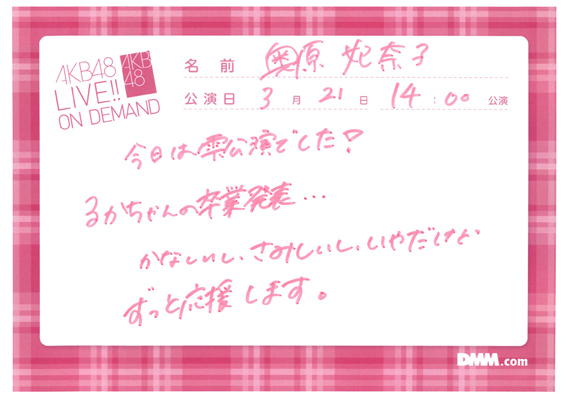 AKB48
LIVE!!
ON DEMAND
AKB
48
名前 奥原 妃奈子
公演日 3月21日 14:00 公演
今日は雫公演でした？
るかちゃんの卒業発表…
かなしいし、さみしいし、いやだけど
ずっと応援します。
DMM.com